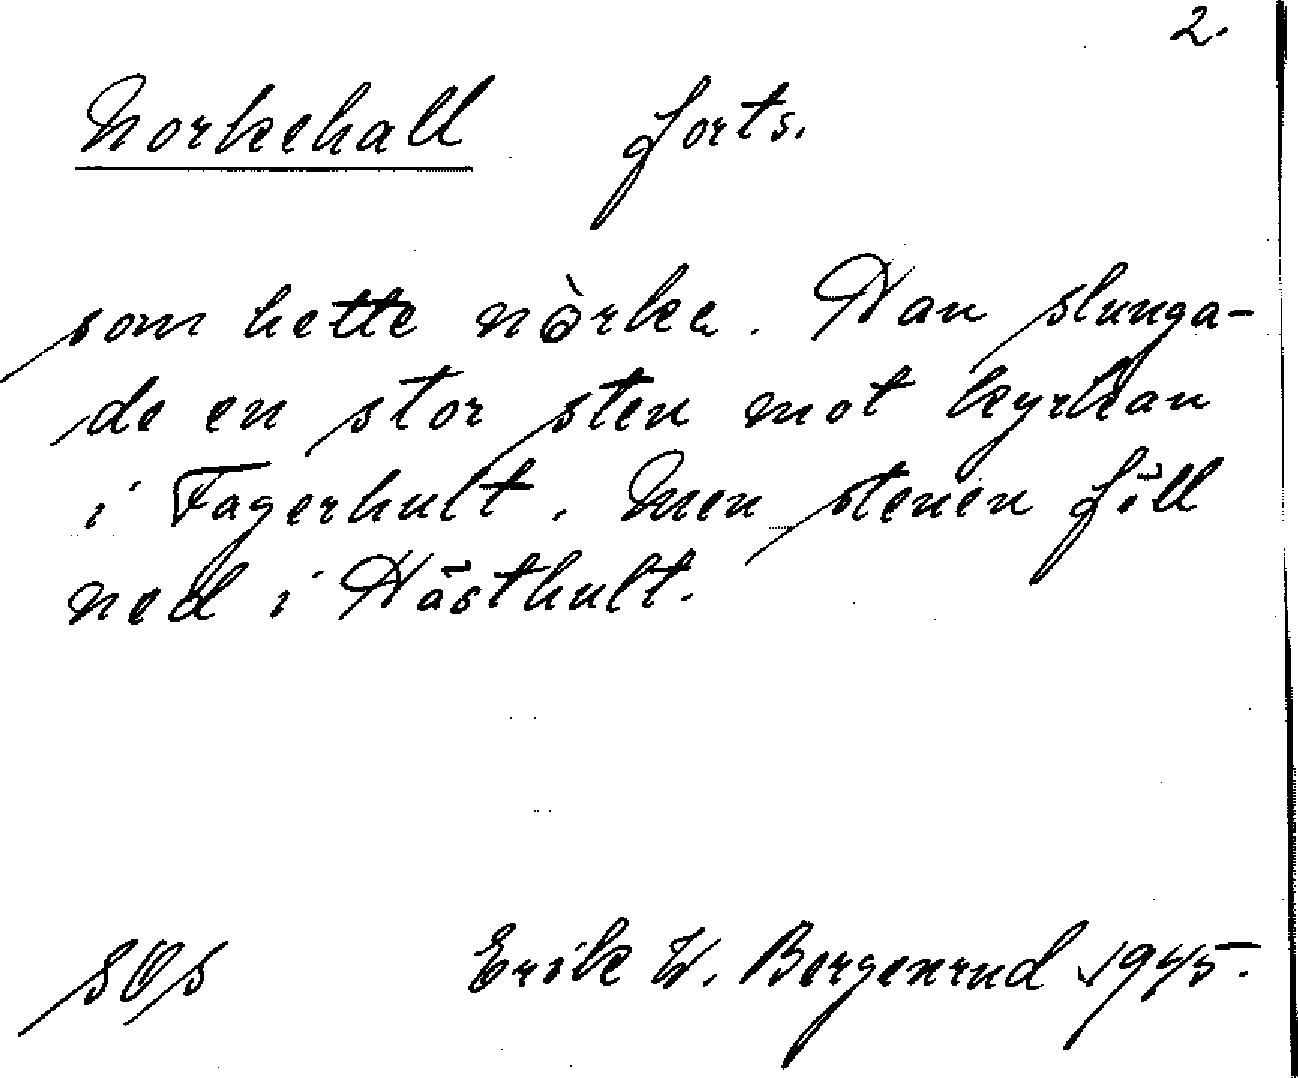 2.
Norkehall forts.
som hette nòrke. Han slunga-
de en stor sten mot kyrkan
i Fagerhult. Men stenen föll
ned i Hästhult.
SOS Erik W. Bergenrud 1945.